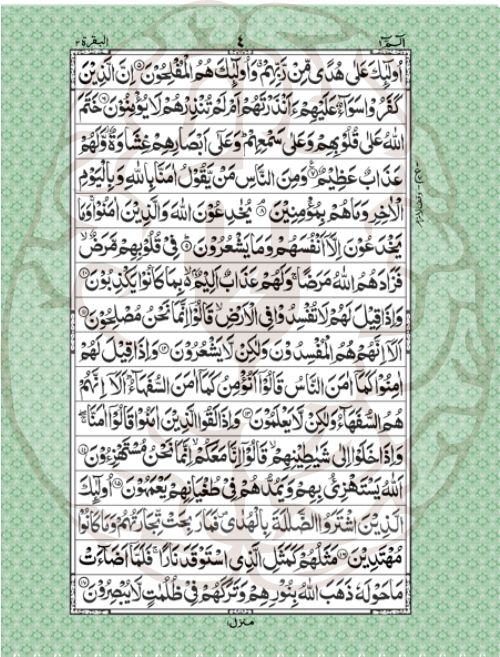 الٓمّٓ ١
٤
البقرة ٢
اُولٰٓئِكَ عَلٰى هُدًى مِّنْ رَّبِّهِمْ ۗ وَاُولٰٓئِكَ هُمُ الْمُفْلِحُوْنَ ۵ اِنَّ الَّذِيْنَ
كَفَرُوْا سَوَآءٌ عَلَيْهِمْ ءَاَنْذَرْتَهُمْ اَمْ لَمْ تُنْذِرْهُمْ لَا يُؤْمِنُوْنَ ۶ خَتَمَ
اللّٰهُ عَلٰى قُلُوْبِهِمْ وَعَلٰى سَمْعِهِمْ ۗ وَعَلٰٓى اَبْصَارِهِمْ غِشَاوَةٌ ۫ وَّلَهُمْ
عَذَابٌ عَظِيْمٌ ۷ وَمِنَ النَّاسِ مَنْ يَّقُوْلُ اٰمَنَّا بِاللّٰهِ وَبِالْيَوْمِ
الْاٰخِرِ وَمَا هُمْ بِمُؤْمِنِيْنَ ۸ يُخٰدِعُوْنَ اللّٰهَ وَالَّذِيْنَ اٰمَنُوْا ۚ وَمَا
يَخْدَعُوْنَ اِلَّآ اَنْفُسَهُمْ وَمَا يَشْعُرُوْنَ ۹ فِيْ قُلُوْبِهِمْ مَّرَضٌ ۙ
فَزَادَهُمُ اللّٰهُ مَرَضًا ۚ وَلَهُمْ عَذَابٌ اَلِيْمٌ ۙ بِمَا كَانُوْا يَكْذِبُوْنَ ۱۰
وَاِذَا قِيْلَ لَهُمْ لَا تُفْسِدُوْا فِى الْاَرْضِ ۙ قَالُوْٓا اِنَّمَا نَحْنُ مُصْلِحُوْنَ ۱۱
اَلَآ اِنَّهُمْ هُمُ الْمُفْسِدُوْنَ وَلٰكِنْ لَّا يَشْعُرُوْنَ ۱۲ وَاِذَا قِيْلَ لَهُمْ
اٰمِنُوْا كَمَآ اٰمَنَ النَّاسُ قَالُوْٓا اَنُؤْمِنُ كَمَآ اٰمَنَ السُّفَهَآءُ ۗ اَلَآ اِنَّهُمْ
هُمُ السُّفَهَآءُ وَلٰكِنْ لَّا يَعْلَمُوْنَ ۱۳ وَاِذَا لَقُوا الَّذِيْنَ اٰمَنُوْا قَالُوْٓا اٰمَنَّا ۖ
وَاِذَا خَلَوْا اِلٰى شَيٰطِيْنِهِمْ ۙ قَالُوْٓا اِنَّا مَعَكُمْ ۙ اِنَّمَا نَحْنُ مُسْتَهْزِءُوْنَ ۱۴
اَللّٰهُ يَسْتَهْزِئُ بِهِمْ وَيَمُدُّهُمْ فِيْ طُغْيَانِهِمْ يَعْمَهُوْنَ ۱۵ اُولٰٓئِكَ
الَّذِيْنَ اشْتَرَوُا الضَّلٰلَةَ بِالْهُدٰى ۪ فَمَا رَبِحَتْ تِّجَارَتُهُمْ وَمَا كَانُوْا
مُهْتَدِيْنَ ۱۶ مَثَلُهُمْ كَمَثَلِ الَّذِى اسْتَوْقَدَ نَارًا ۚ فَلَمَّآ اَضَآءَتْ
مَا حَوْلَهٗ ذَهَبَ اللّٰهُ بِنُوْرِهِمْ وَتَرَكَهُمْ فِيْ ظُلُمٰتٍ لَّا يُبْصِرُوْنَ ۱۷
منزل ١